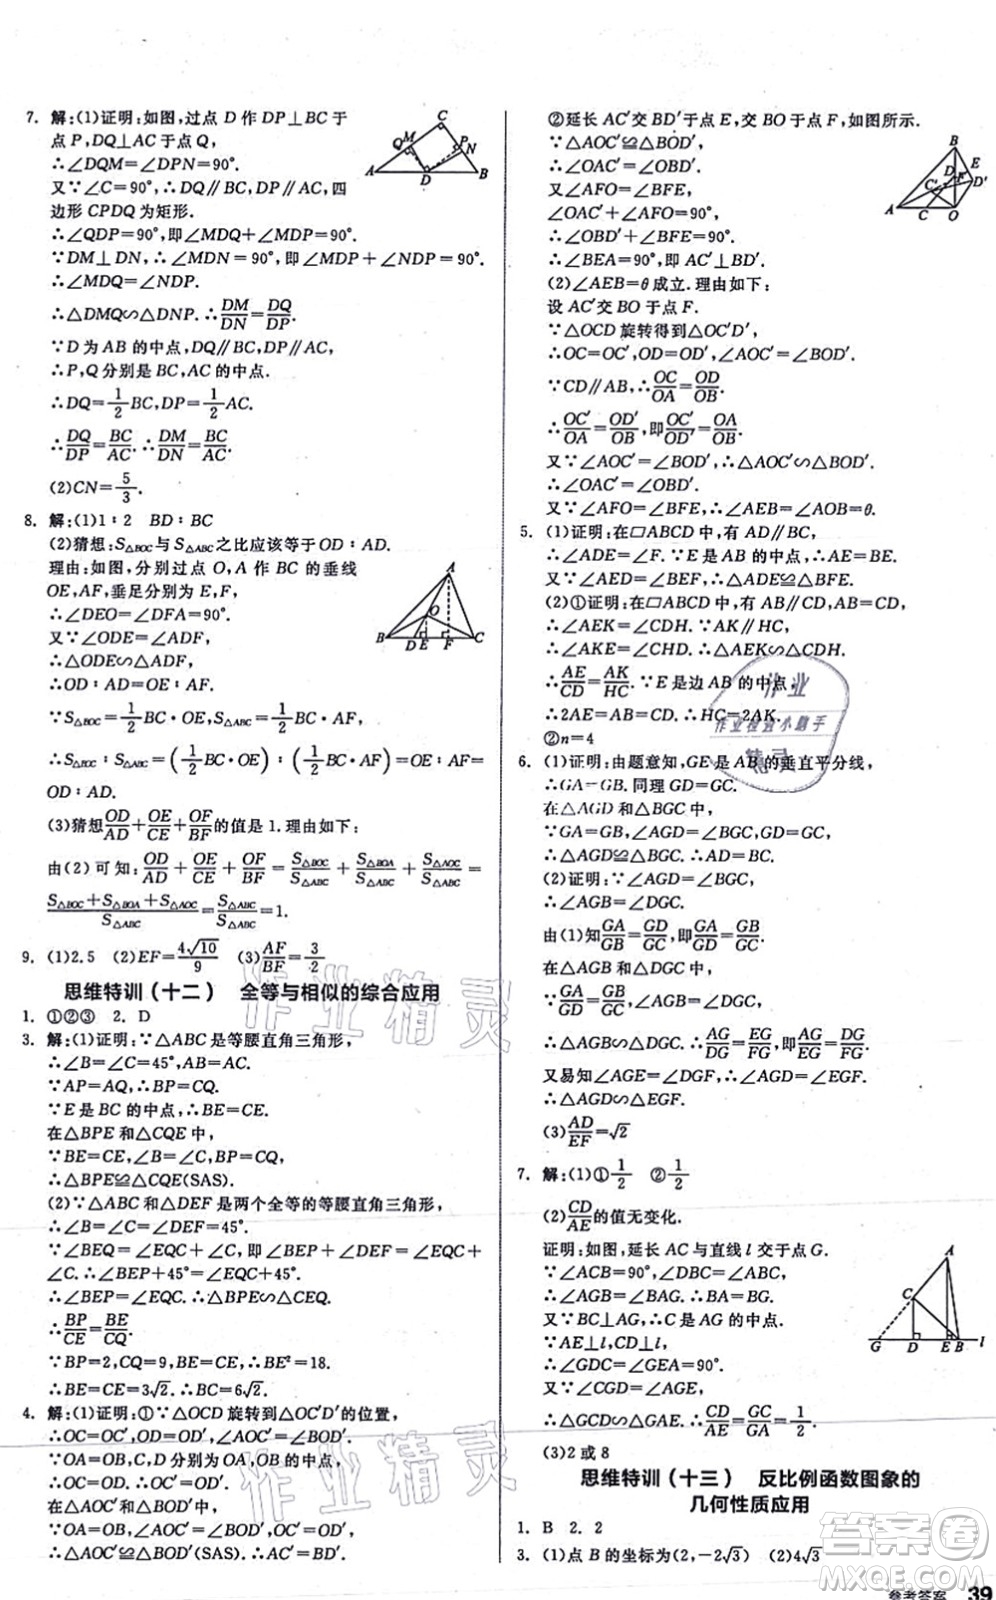 7. 解:(1)证明:如图,过点 D 作 DP⊥BC 于
点 P,DQ⊥AC 于点 Q,
∴∠DQM=∠DPN=90°.
又∵∠C=90°,∴DQ∥BC,DP∥AC,四
边形 CPDQ 为矩形.
∴∠QDP=90°,即∠MDQ+∠MDP=90°.
∵DM⊥DN,∴∠MDN=90°,即∠MDP+∠NDP=90°.
∴∠MDQ=∠NDP.
∴△DMQ∽△DNP.∴DM/DN=DQ/DP.
∵D 为 AB 的中点,DQ∥BC,DP∥AC,
∴P,Q 分别是 BC,AC 的中点.
∴DQ=1/2 BC,DP=1/2 AC.
∴DQ/DP=BC/AC.∴DM/DN=BC/AC.
(2)CN=5/3.
8. 解:(1)1∶2 BD∶BC
(2)猜想:S△BOC与S△ABC之比应该等于 OD∶AD.
理由:如图,分别过点 O,A 作 BC 的垂线
OE,AF,垂足分别为 E,F,
∴∠DEO=∠DFA=90°.
又∵∠ODE=∠ADF,
∴△ODE∽△ADF,
∴OD∶AD=OE∶AF.
∵S△BOC=1/2 BC·OE,S△ABC=1/2 BC·AF,
∴S△BOC∶S△ABC=(1/2 BC·OE)∶(1/2 BC·AF)=OE∶AF=
OD∶AD.
(3)猜想OD/AD+OE/CE+OF/BF的值是 1.理由如下:
由(2)可知:OD/AD+OE/CE+OF/BF=S△BOC/S△ABC+S△BOA/S△ABC+S△AOC/S△ABC=
(S△BOC+S△BOA+S△AOC)/S△ABC=S△ABC/S△ABC=1.
9. (1)2.5 (2)EF=4√10/9 (3)AF/BF=3/2
思维特训(十二) 全等与相似的综合应用
1. ①②③ 2. D
3. 解:(1)证明:∵△ABC 是等腰直角三角形,
∴∠B=∠C=45°,AB=AC.
∵AP=AQ,∴BP=CQ.
∵E 是 BC 的中点,∴BE=CE.
在△BPE 和△CQE 中,
∵BE=CE,∠B=∠C,BP=CQ,
∴△BPE≌△CQE(SAS).
(2)∵△ABC 和△DEF 是两个全等的等腰直角三角形,
∴∠B=∠C=∠DEF=45°.
∵∠BEQ=∠EQC+∠C,即∠BEP+∠DEF=∠EQC+
∠C,∴∠BEP+45°=∠EQC+45°,
∴∠BEP=∠EQC.∴△BPE∽△CEQ.
∴BP/CE=BE/CQ.
∵BP=2,CQ=9,BE=CE,∴BE²=18.
∴BE=CE=3√2.∴BC=6√2.
4. 解:(1)证明:①∵△OCD 旋转到△OC′D′的位置,
∴OC=OC′,OD=OD′,∠AOC′=∠BOD′.
∵OA=OB,C,D 为 OA,OB 的中点,
∴OC=OD.∴OC′=OD′.
在△AOC′和△BOD′中,
∵OA=OB,∠AOC′=∠BOD′,OC′=OD′,
∴△AOC′≌△BOD′(SAS).∴AC′=BD′.
②延长 AC′交 BD′于点 E,交 BO 于点 F,如图所示.
∵△AOC′≌△BOD′,
∴∠OAC′=∠OBD′.
又∠AFO=∠BFE,
∠OAC′+∠AFO=90°,
∴∠OBD′+∠BFE=90°.
∴∠BEA=90°,即 AC′⊥BD′.
(2)∠AEB=θ 成立.理由如下:
设 AC′交 BO 于点 F.
∵△OCD 旋转得到△OC′D′,
∴OC=OC′,OD=OD′,∠AOC′=∠BOD′.
∵CD∥AB,∴OC/OA=OD/OB.
∴OC′/OA=OD′/OB,即OC′/OD′=OA/OB.
又∵∠AOC′=∠BOD′,∴△AOC′∽△BOD′.
∴∠OAC′=∠OBD′.
又∵∠AFO=∠BFE,∴∠AEB=∠AOB=θ.
5. (1)证明:在▱ABCD 中,有 AD∥BC,
∴∠ADE=∠F.∵E 是 AB 的中点,∴AE=BE.
又∵∠AED=∠BEF,∴△ADE≌△BFE.
(2)①证明:在▱ABCD 中,AB∥CD,AB=CD,
∴∠AEK=∠CDH.∵AK∥HC,
∴∠AKE=∠CHD.∴△AEK∽△CDH.
∴AE/CD=AK/HC.∵E 是边 AB 的中点,
∴2AE=AB=CD.∴HC=2AK.
②n=4
6. (1)证明:由题意知,GE是 AB 的垂直平分线,
∴GA=GB.同理 GD=GC.
在△AGD 和△BGC 中,
∵GA=GB,∠AGD=∠BGC,GD=GC,
∴△AGD≌△BGC.∴AD=BC.
(2)证明:∵∠AGD=∠BGC,
∴∠AGB=∠DGC.
由(1)知GA/GB=GD/GC,即GA/GD=GB/GC,
在△AGB 和△DGC 中,
∵GA/GD=GB/GC,∠AGB=∠DGC,
∴△AGB∽△DGC.∴AG/DG=EG/FG,即AG/EG=DG/FG.
又易知∠AGE=∠DGF,∴∠AGD=∠EGF.
∴△AGD∽△EGF.
(3)AD/EF=√2
7. 解:(1)①1/2 ②1/2
(2)CD/AE的值无变化.
证明:如图,延长 AC 与直线 l 交于点 G.
∵∠ACB=90°,∴∠BCG=90°,
∴∠ABG=∠AGB.∴BA=BG.
又∵BC⊥AG,∴CG=AC.
∵AE⊥l,CD⊥l,
∴∠GDC=∠GEA=90°.
又∵∠CGD=∠AGE,
∴△GDC∽△GAE.∴CD/AE=GC/GA=1/2.
(3)2 或 8
思维特训(十三) 反比例函数图象的
几何性质应用
1. B 2. 2
3. (1)点 B 的坐标为(2,-2√3) (2)4√3
参考答案 39
作业精灵
作业精灵
作业
作业检查小助手
精灵
答案圈
MXQE.COM